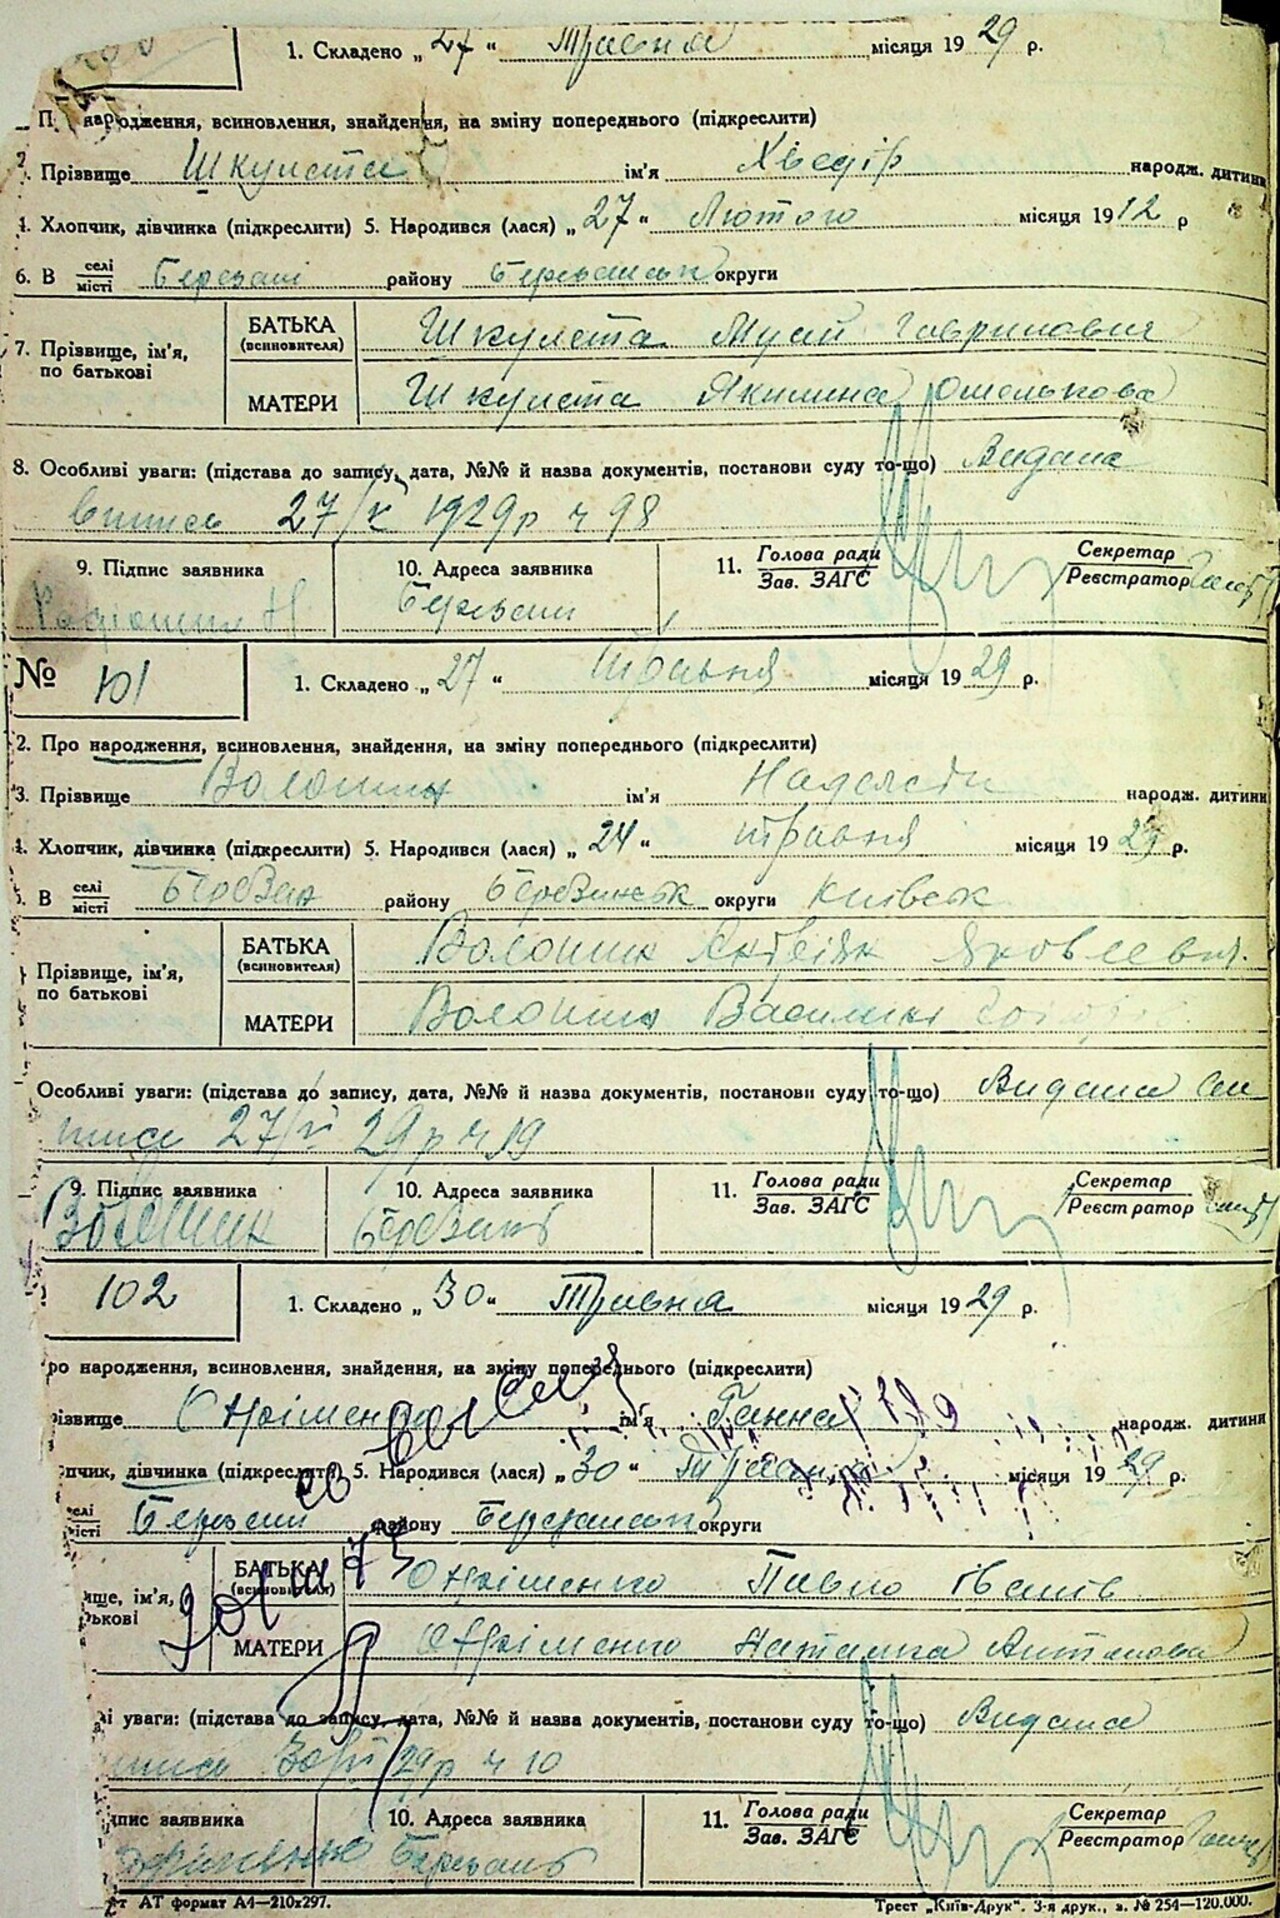 1. Складено „ 27 “ Травня місяця 19 29 р.
народження, всиновлення, знайдення, на зміну попереднього (підкреслити)
Прізвище Шкулета ім'я Хведір народж. дитини
4. Хлопчик, дівчинка (підкреслити) 5. Народився (лася) „ 27 “ Лютого місяця 1912 р
6. В селі/місті Березані району Березанськ округи
7. Прізвище, ім'я, по батькові
БАТЬКА (всиновителя) Шкулета Мусій Гаврилович
МАТЕРИ Шкулета Якилина Омелькова
8. Особливі уваги: (підстава до запису, дата, №№ й назва документів, постанови суду то-що) Видана
випись 27/V 1929р ч 98
9. Підпис заявника 10. Адреса заявника 11. Голова ради/Зав. ЗАГС Секретар/Реєстратор
Березань
№ 101 1. Складено „ 27 “ Травня місяця 19 29 р.
2. Про народження, всиновлення, знайдення, на зміну попереднього (підкреслити)
3. Прізвище Волошин ім'я народж. дитини
4. Хлопчик, дівчинка (підкреслити) 5. Народився (лася) „ 24 “ травня місяця 19 29 р.
В селі/місті Березан району Березанськ округи Київськ
Прізвище, ім'я, по батькові
БАТЬКА (всиновителя) Волошин Яковлевич
МАТЕРИ Волошин
Особливі уваги: (підстава до запису, дата, №№ й назва документів, постанови суду то-що) Видана ви
пись 27/V 29р ч 99
9. Підпис заявника 10. Адреса заявника 11. Голова ради/Зав. ЗАГС Секретар/Реєстратор
Волошин Березань
102 1. Складено „ 30 “ Травня місяця 19 29 р.
ро народження, всиновлення, знайдення, на зміну попереднього (підкреслити)
різвище Охріменко ім'я Ганна народж. дитини
пчик, дівчинка (підкреслити) 5. Народився (лася) „ 30 “ Травня місяця 19 29 р.
селі/місті Березані району Березанськ округи
ище, ім'я, ькові
БАТЬКА (всиновителя) Охріменко Павло Іванів
МАТЕРИ Охріменко Наталка Антонова
і уваги: (підстава до запису, дата, №№ й назва документів, постанови суду то-що) Видана
пись 30/V 29р ч 10
пис заявника 10. Адреса заявника 11. Голова ради/Зав. ЗАГС Секретар/Реєстратор
Охріменко Березань
т АТ формат А4—210х297. Трест „Київ-Друк“. 3-я друк., з. № 254—120.000.